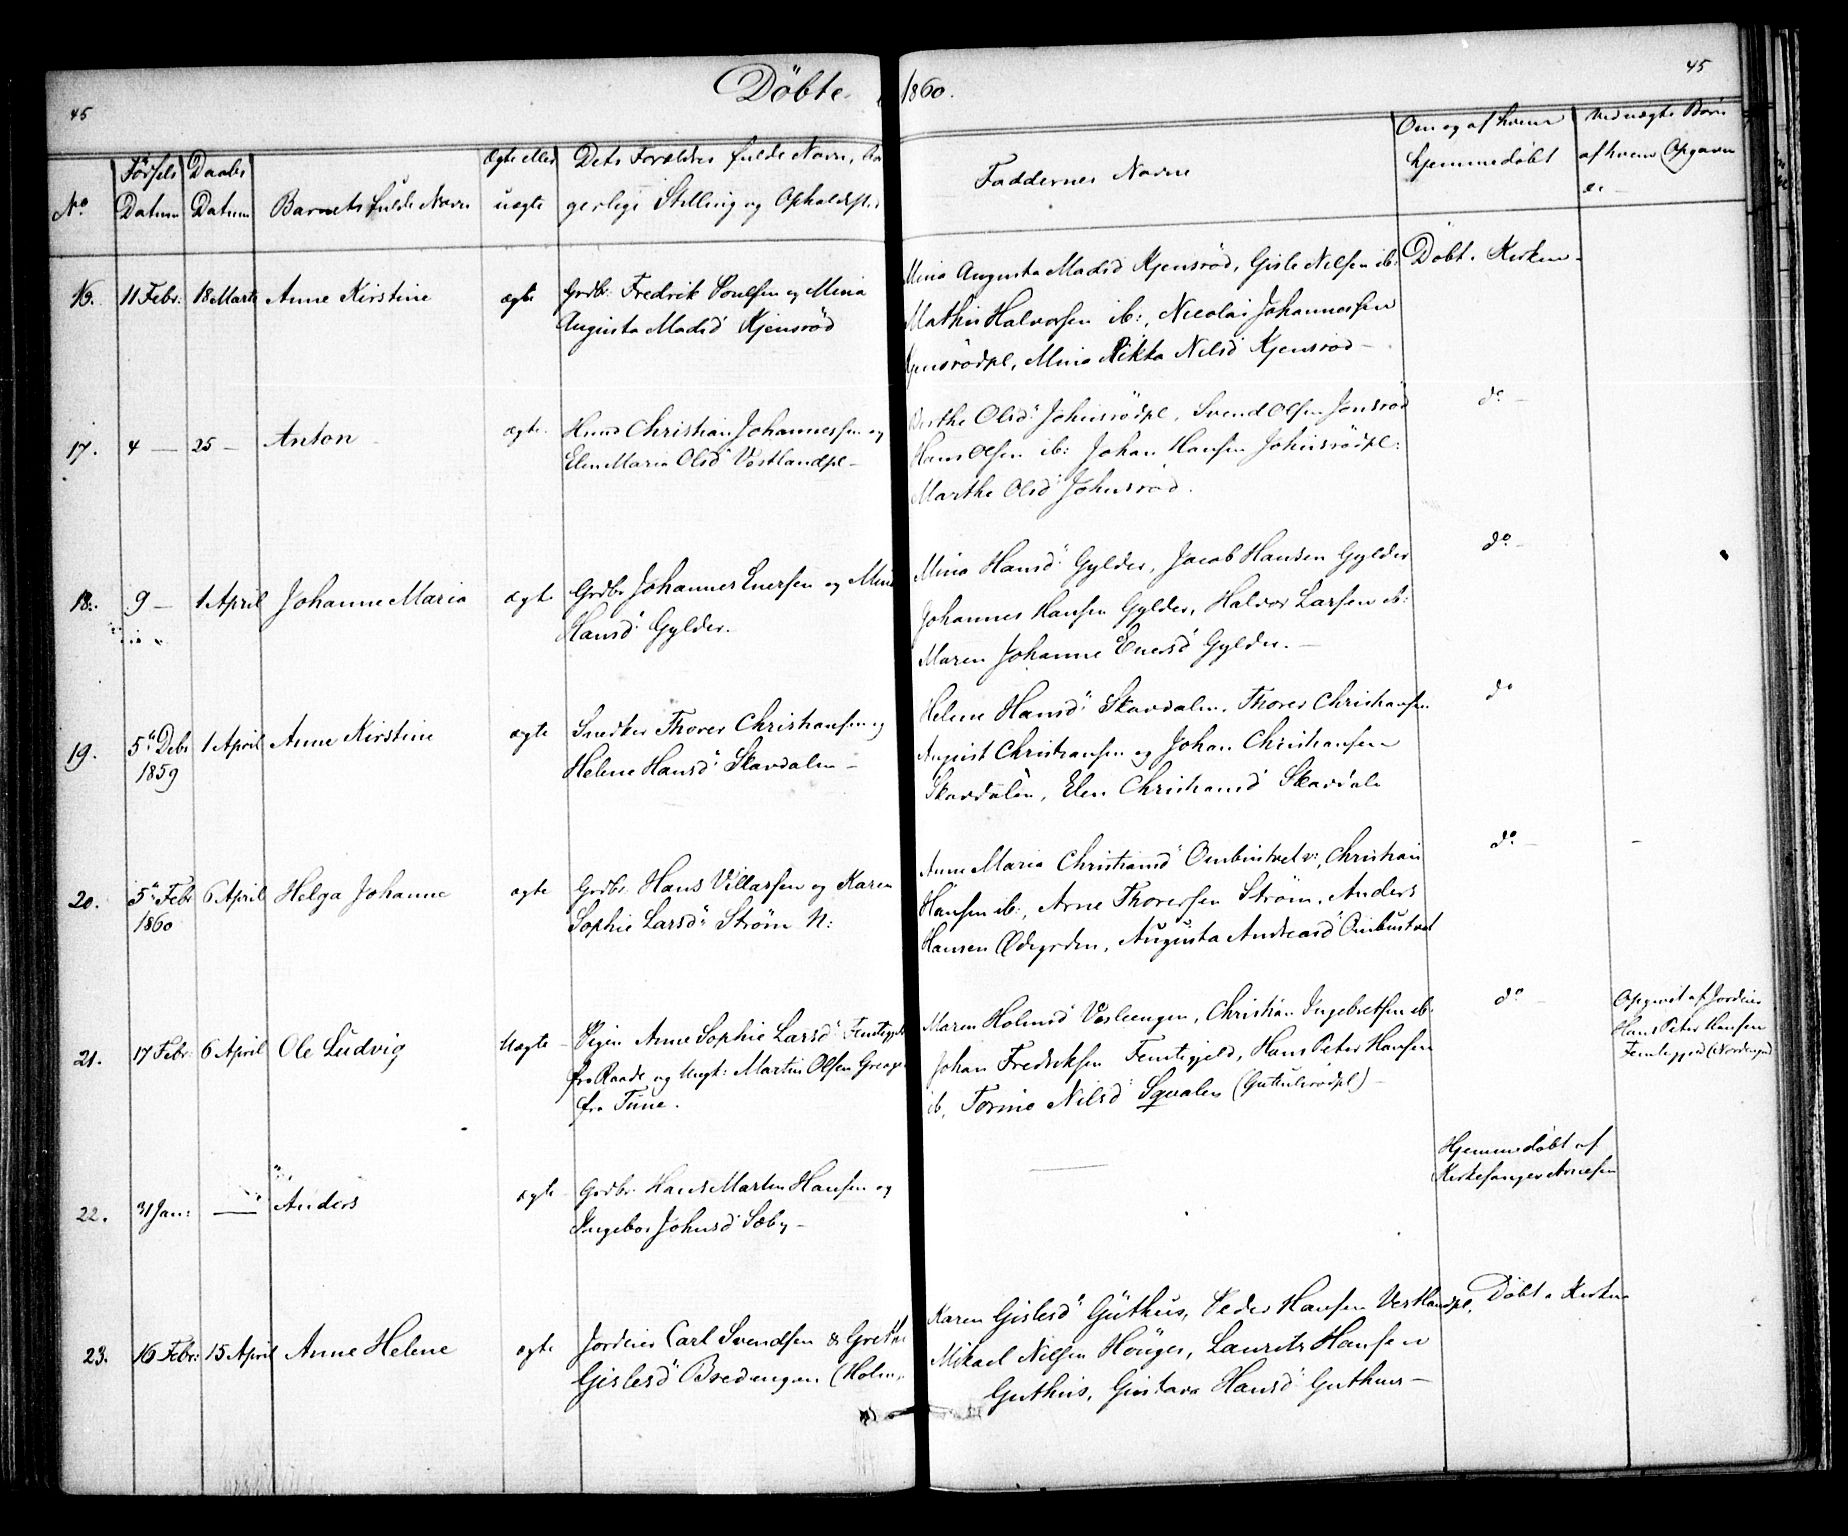 45
Döbte 1860.
45
No
Førsels Datum
Daabs Datum
Barnets fulde Navn
Ægte eller uægte
Dets Forældres fulde Navn, Bor
gerlige Stilling og Opholdsst.
Faddernes Navne
Om og af hvem
hjemmedøbt
Ved uægte Børn
af hvem Opgaven
er
16. 11 Febr. 18 Marts Anne Kirstine ægte Grdbr: Fredrik Poulsen og Mina
Augusta Madsd Kjensrød
Mina Augusta Madsd Kjensrød, Gisle Nilsen ib:
Mathis Halvorsen ib:, Nicolai Johannessen
Kjensrødpl, Mina Rikka Nilsd Kjensrød —
Döbt i Kirken
17. 4 — 25 — Anton ægte Husm Christian Johannessen og
Elen Maria Olsd Vestlandpl —
Berthe Olsd Johnsrödpl, Svend Olsen Jonsröd
Hans Olsen ib: Johan Hansen Johnsrödpl:
Marthe Olsd Johnsröd.
do —
18. 9 — 1 April Johanne Maria ægte Grdbr Johannes Enersen og Mina
Hansd Gylder.
Mina Hansd Gylder, Jacob Hansen Gylder
Johannes Hansen Gylder, Halvor Larsen ib:
Maren Johanne Enersd Gylder. —
do —
19. 5te Debr 1 April Anne Kirstine ægte Snedker Thorer Christiansen og
1859 Helene Hansd Skavdalen —
Helene Hansd Skavdalen, Thorer Christiansen
August Christiansen og Johan Christiansen
Skavdalen, Elen Christiansd Skavdale
do
20. 5te Febr 6 April Helga Johanne ægte Grdbr. Hans Villassen og Karen
1860 Sophie Larsd Strøm N:
Anne Maria Christiansd Ombustvet v:, Christian
Hansen ib:, Arne Thorersen Strøm, Anders
Hansen Ødegrden, Augusta Andreasd Ombustvet
do —
21. 17 Febr: 6 April Ole Ludvig Uægte — Pigen Anne Sophie Larsd Femtegjeld
fra Raade og Ungk: Martin Olsen
fra Tune.
Maren Holmsd Vesleengen, Christian Ingebretsen ib:
Johan Fredriksen Femtegjeld, Hans Peter Hansen
ib, Torine Nilsd (Gutulsrödpl) —
do —
Opgivet af Jordeier
Hans Peter Hansen
22. 31 Jan: — Anders ægte Grdbr. Hans Martin Hansen og
Ingebor Johnsd Sæby —
Hjemmedøbt af
Kirkesanger Arnesen
23. 16 Febr: 15 April Anne Helene ægte Jordeier Carl Svendsen & Grethe
Gislesd Bredengen (Holm
Karen Gislesd Guthus, Peder Hansen Vestlandpl,
Mikael Nilsen Höuger, Laurits Hansen
Guthus, Gustava Hansd Guthus —
Döbt i Kirken